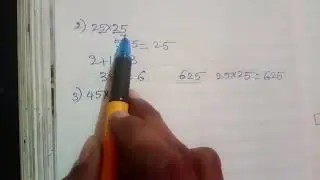 2) 25×25
5=25
2+1
3 6 625 25×25=625
3) 45×